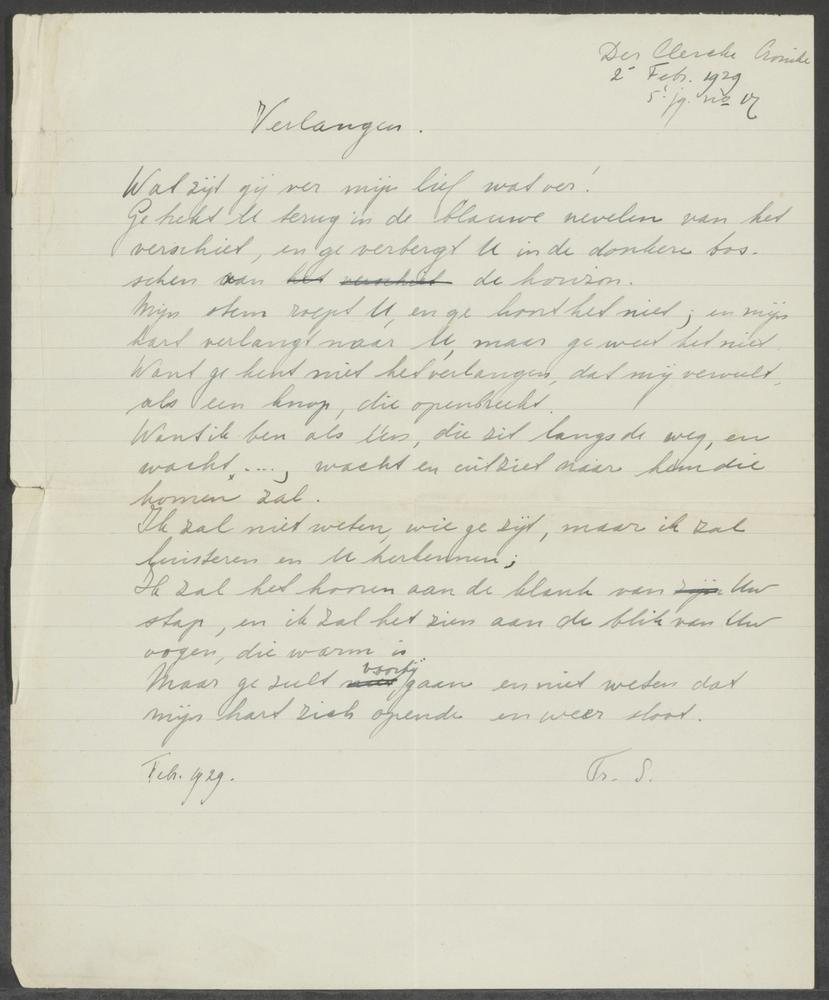 Der Clercke Cronike
2e Febr. 1929
5e jg. no 17
Verlangen.
Wat zijt gij ver mijn lief wat ver!
Ge trekt U terug in de blauwe nevelen van het
verschiet, en ge verbergt U in de donkere bos-
schen van het verschiet de horizon.
Mijn stem roept U, en ge hoort het niet; en mijn
hart verlangt naar U, maar ge weet het niet.
Want ge kent niet het verlangen, dat mij vervult,
als een knop, die openbreekt.
Want ik ben als één, die zit langs de weg, en
wacht ...., wacht en uitziet naar hem die
komen zal.
Ik zal niet weten, wie ge zijt, maar ik zal
luisteren en U herkennen;
Ik zal het hooren aan de klank van zijn Uw
stap, en ik zal het zien aan de blik van Uw
oogen, die warm is.
Maar ge zult niet voorbij gaan en niet weten dat
mijn hart zich opende en weer sloot.
Febr. 1929.
Tr. S.